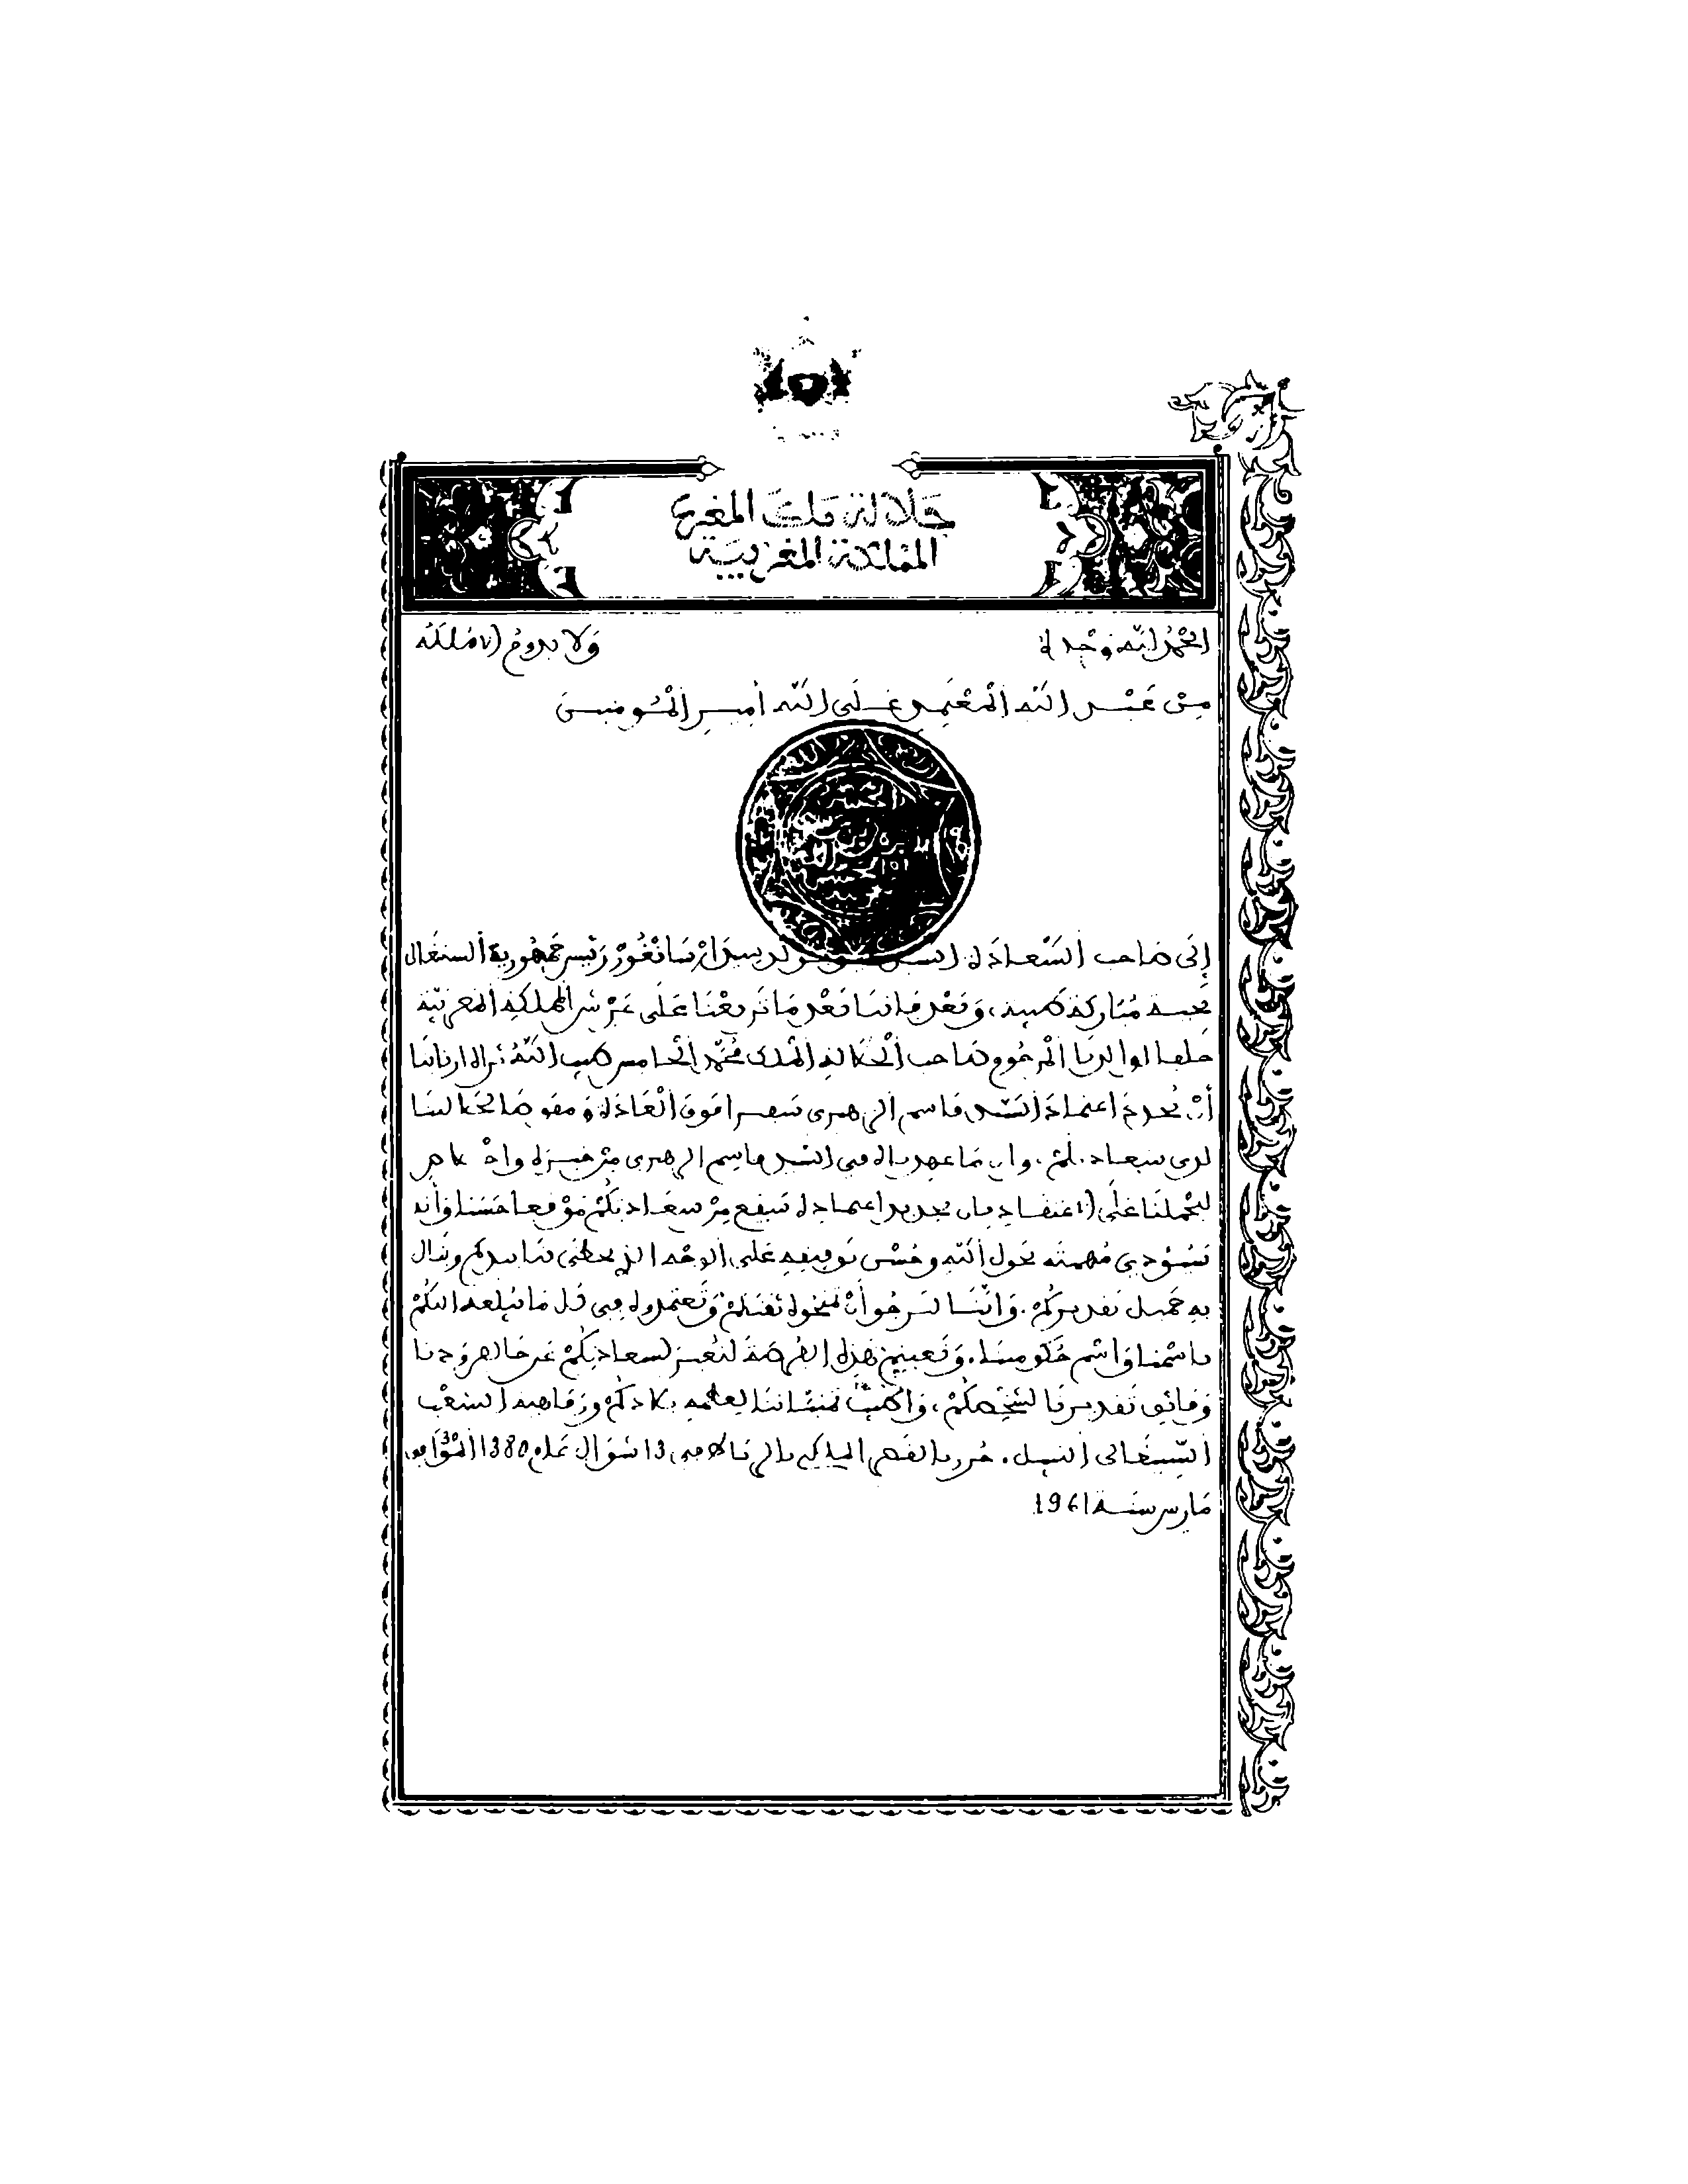 جلالة ملك المغرب
المملكة المغربية
الحمد لله وحده ولا يدوم إلا ملكه
من عبد الله المعتمد على الله أمير المومنين
إلى صاحب السعادة السيد ليوبولد سيدار سانغور رئيس جمهورية السنغال
تحية مباركة طيبة، وبعد فإننا بعد ما تربعنا على عرش المملكة المغربية
خلفا لوالدنا المرحوم صاحب الجلالة الملك محمد الخامس طيب الله ثراه ارتأينا
أن نجدد اعتماد السيد قاسم الزهيري سفيرا فوق العادة ومفوضا لجلالتنا
لدى سعادتكم. وإن ما عهدناه في السيد قاسم الزهيري من خبرة وإخلاص
ليحملنا على الاعتقاد بأن تجديد اعتماده سيقع من سعادتكم موقعا حسنا وأنه
سيؤدي مهمته بحول الله وحسن توفيقه على الوجه الذي يحظى بتأييدكم وينال
به جميل تقديركم. وإننا لنرجو أن تمنحوه ثقتكم وتعتمدوه في كل ما يبلغه إليكم
باسمنا واسم حكومتنا. ونغتنم هذه الفرصة لنعبر لسعادتكم عن خالص ودنا
وفائق تقديرنا لشخصكم، وأطيب تمنياتنا لعظمة بلادكم ورفاهية الشعب
السنغالي النبيل. حرر بالقصر الملكي بالرباط في 13 شوال عام 1380 الموافق
مارس سنة 1961